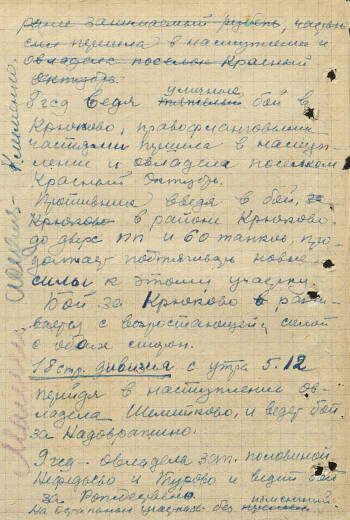 ранее занимаемый рубеж, частью
сил перешла в наступление и
овладела поселком Красный
Октябрь.
8 гсд ведя уличные тяжелые бой в
Крюково, правофланговыми
частями перешла в наступ-
ление и овладела поселком
Красный Октябрь.
Противник введя в бой, за
Крюково в районе Крюково
до двух пп и 60 танков, про-
должает подтягивать новые
силы к этому участку.
Бой за Крюково разви-
вается с возростающей силой
с обоих сторон.
18 стр. дивизия с утра 5.12
перейдя в наступление ов-
ладела Шемитково, и ведет бой
за Надовражино.
9 гсд - овладела зап. половиной
Нефедьево и Турово и ведет бой
за Рождествено.
На остальных участках без изменений